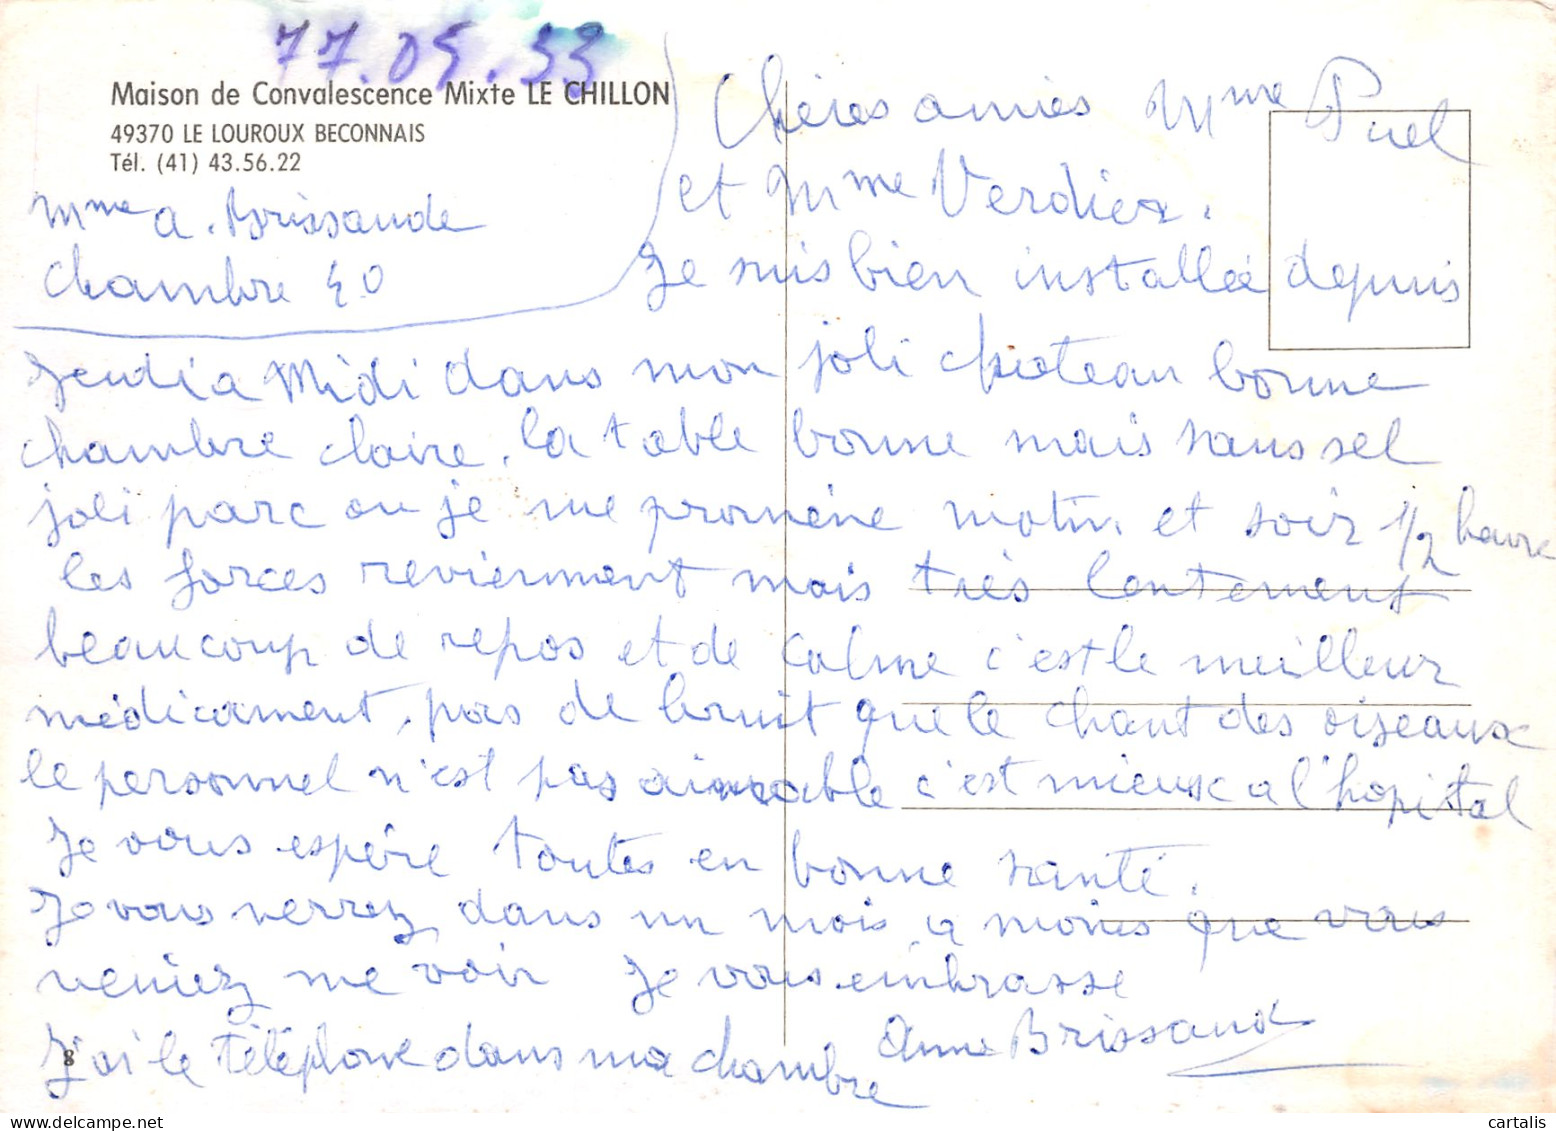 77.05.33
Maison de Convalescence Mixte LE CHILLON
49370 LE LOUROUX BECONNAIS
Tél. (41) 43.56.22
Mme A. Brissaude
Chambre 40
Chères amies Mme Puel
et Mme Verdier.
Je suis bien installée depuis
Jeudi a Midi dans mon joli chateau bonne
chambre claire, la table bonne mais sans sel
joli parc ou je me promène matin et soir 1/2 heure
les forces reviennent mais très lentement
beaucoup de repos et de calme c'est le meilleur
médicament, pas de bruit que le chant des oiseaux
le personnel n'est pas aimable c'est mieux a l'hopital
Je vous espère toutes en bonne santé.
Je vous verrez dans un mois a moins que vous
veniez me voir Je vous embrasse
J'ai le téléphone dans ma chambre
Anne Brissaud
8
cartalis